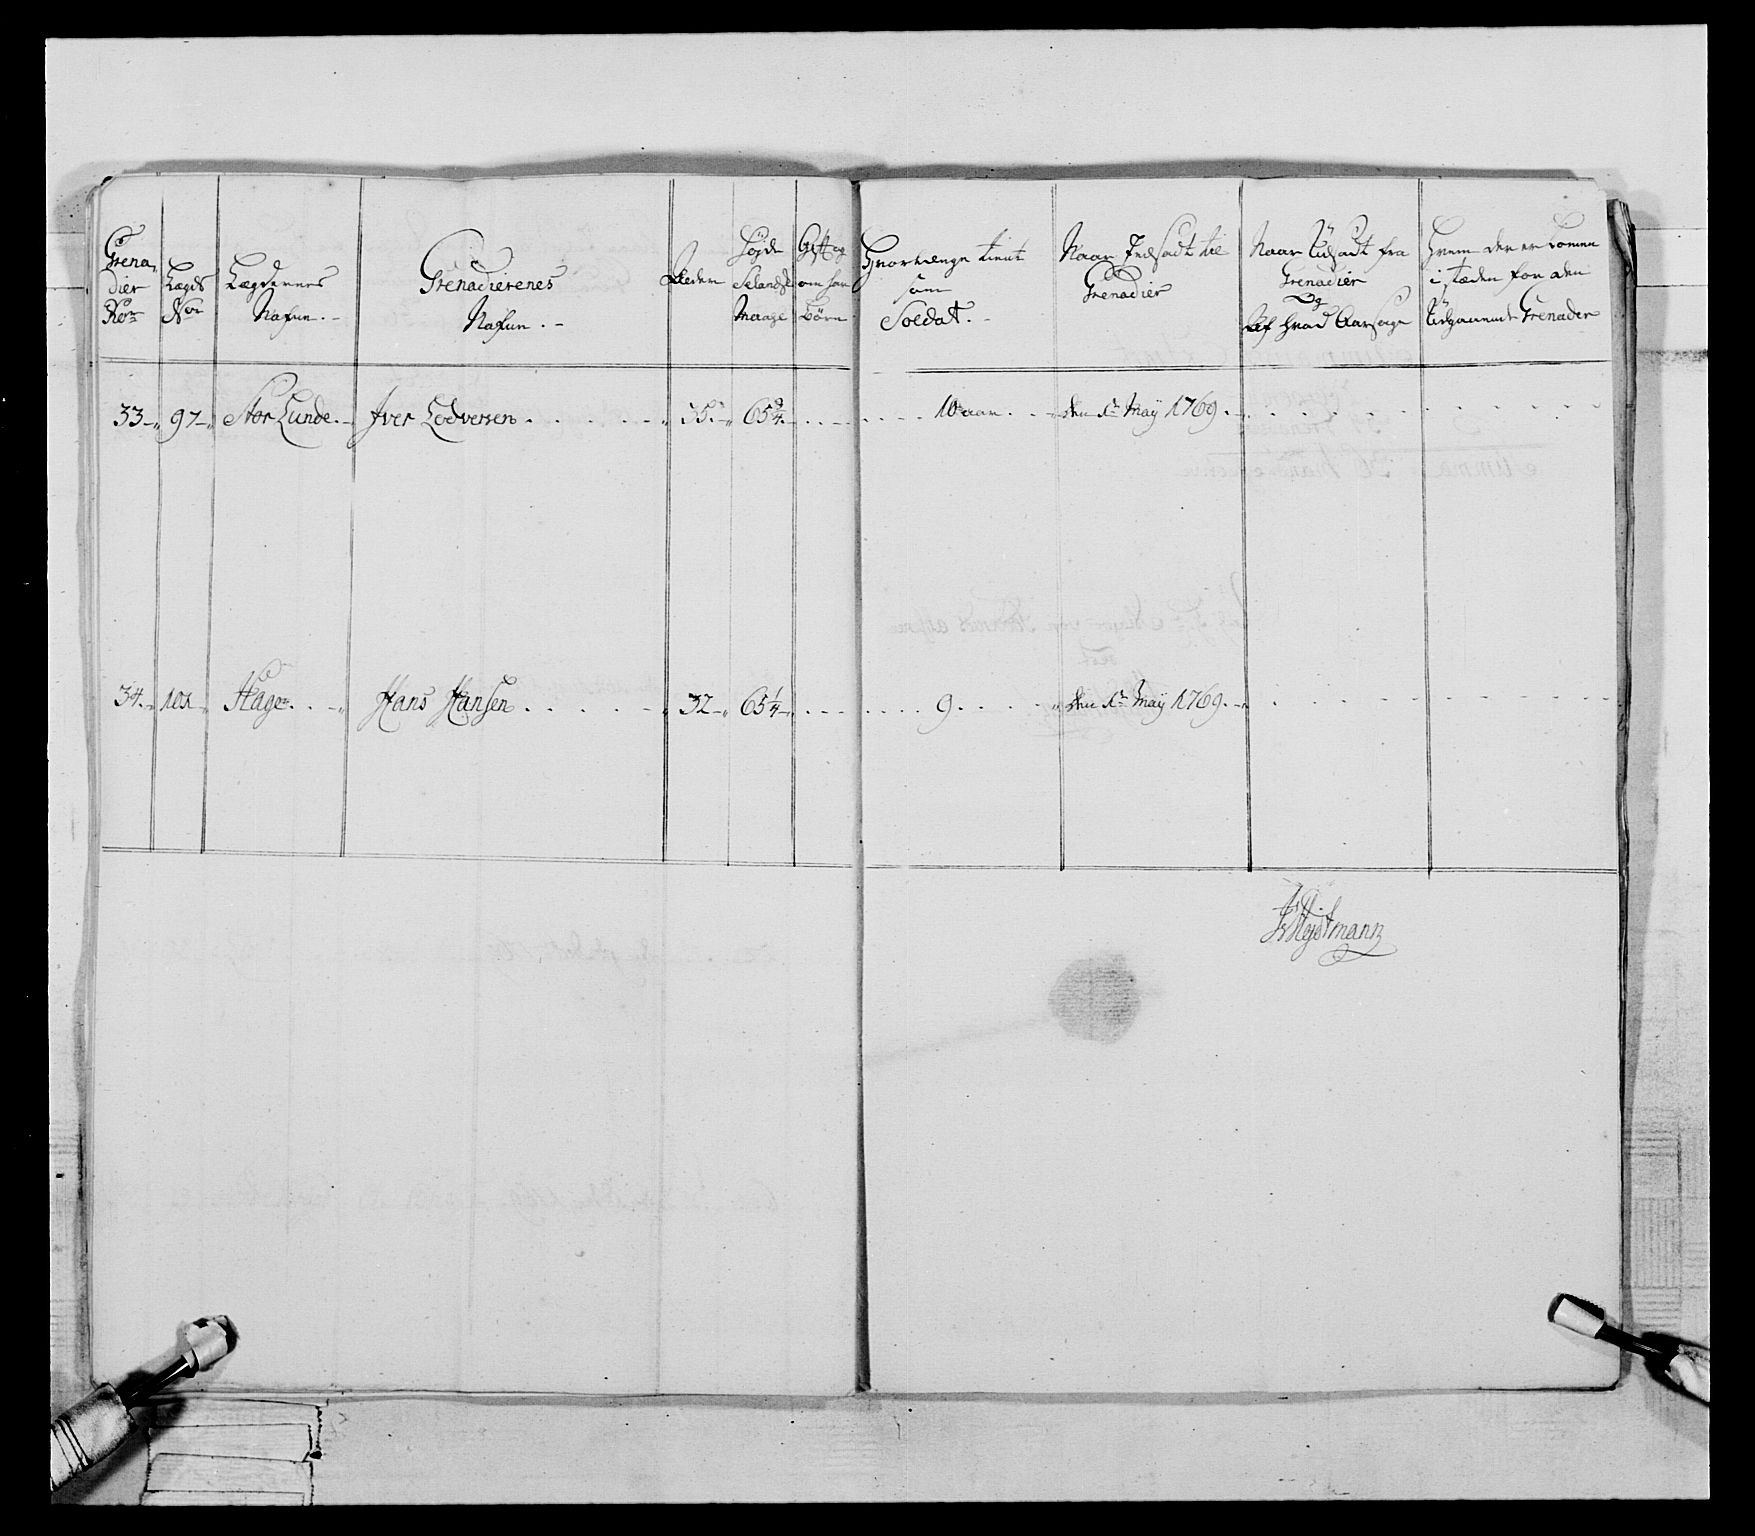 Grena-
dier
No:
Lægds
No:
Lægdernes
Nafne.
Grenadierenes
Nafne.
Alder
Höjde
Selandsk
Maage
Gift og
om har
Börn
Hvorlænge tient
som
Soldat.
Naar Indsadt til
Grenadier
Naar Udsadt fra
Grenadier
og
Af hvad Aarsage
Hvem der er komen
i stæden for den
Udgaaende Grenader
33 97 Stor Lunde Iver Lodversen 35 65 3/4 10 aar den 1te Maÿ 1769
34 101 Hage Hans Hansen 32 65 1/4 9 den 1te Maÿ 1769